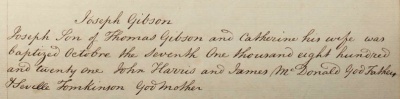 Joseph Gibson
Joseph Son of Thomas Gibson and Catherine his wife was
baptized Octobre the Seventh One thousand eight hundred
and twenty one John Harris and James McDonald God Fathers
Tomkinson God Mother